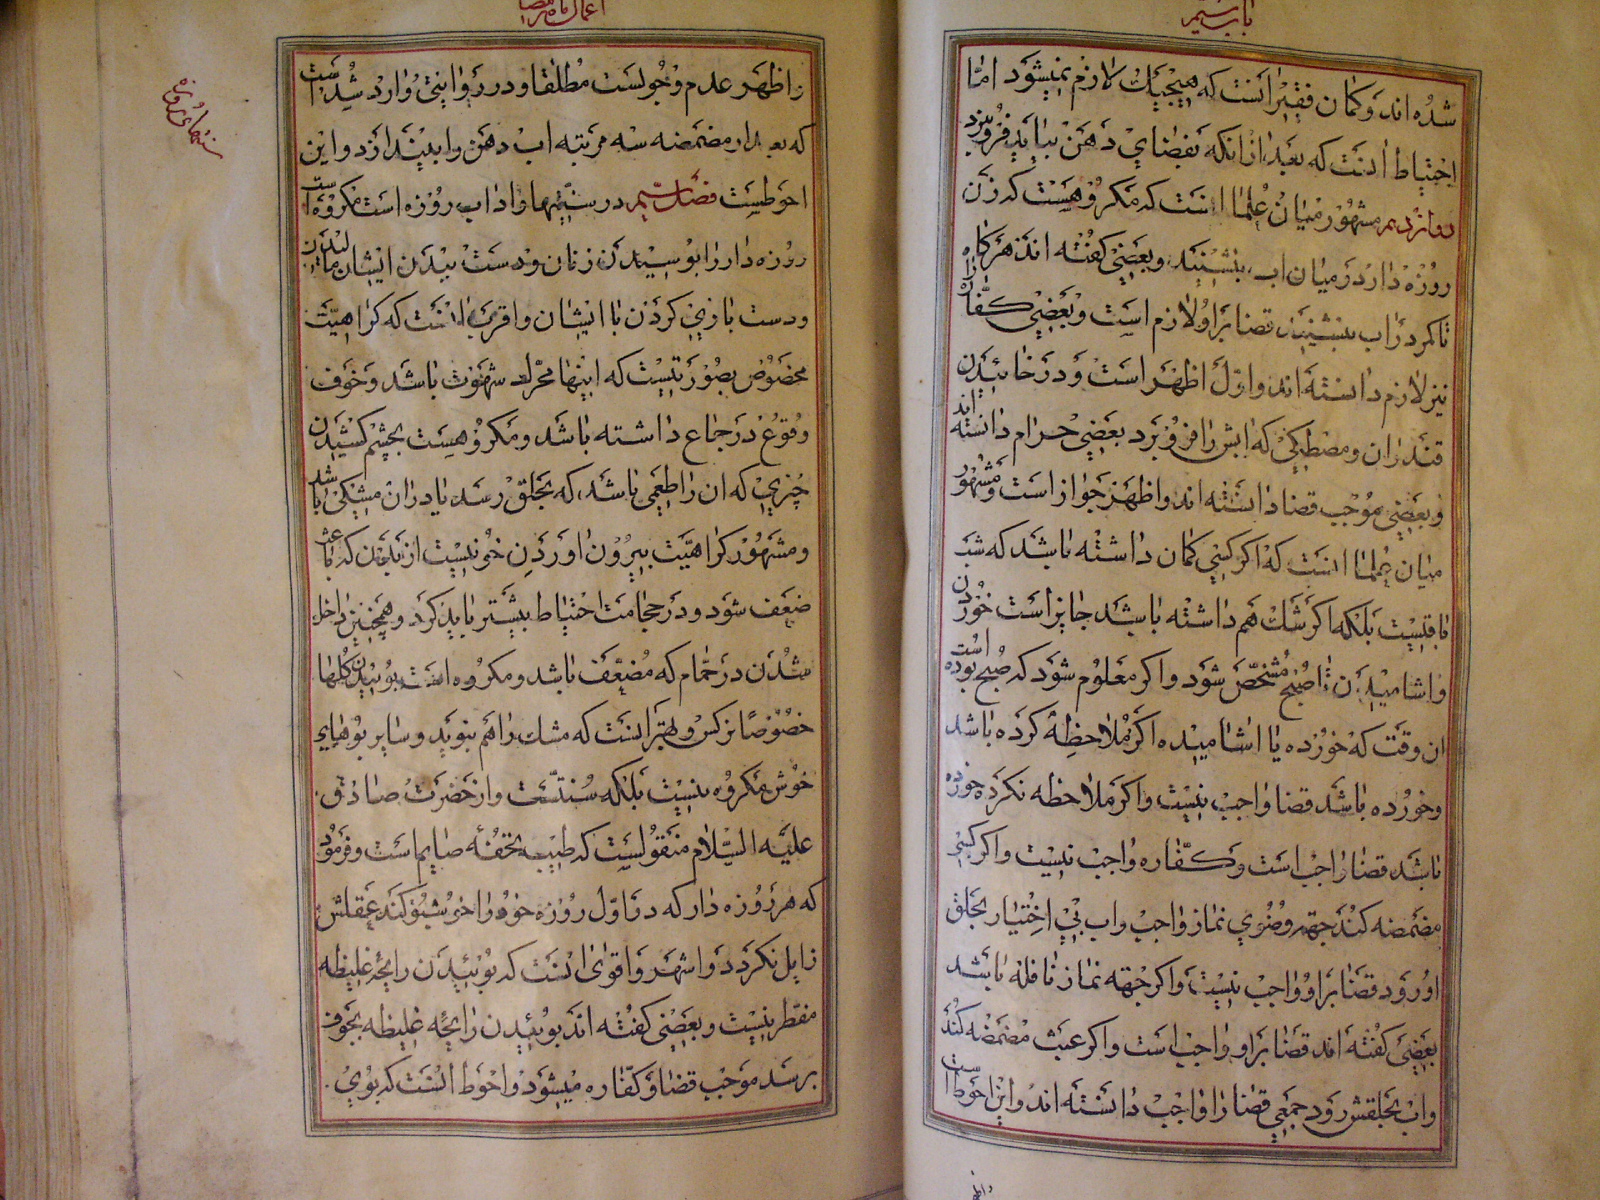 باب سیم
شده اند و کمان فقیر انست که هیچیک لازم نمیشود اما
احتیاط آنست که بعد از انکه بفضای دهن بیاید فرو نبرد
دوازدهم مشهور میان علما انست که مکروهست که زن
روزه دار در میان اب بنشیند و بعضی کفته اند هر کاه
تا کمر در اب بنشیند قضا بر او لازم است و بعضی کفاره را
نیز لازم دانسته اند و اول اظهر است و در خائیدن
قندران و مصطکی که ابش را فرو برد بعضی حرام دانسته اند
و بعضی موجب قضا دانسته اند و اظهر جواز است و مشهور
میان علما انست که اکر کسی کمان داشته باشد که شب
باقیست بلکه اکر شک هم داشته باشد جایز است خوردن
و اشامیدن تا صبح مشخص شود و اکر معلوم شود که صبح بوده است
ان وقت که خورده یا اشامیده اکر ملاحظه کرده باشد
و خورده باشد قضا واجب نیست و اکر ملاحظه نکرده خورده
باشد قضا واجب است و کفاره واجب نیست و اکر کسی
مضمضه کند جهة وضوی نماز واجب و اب بی اختیار بحلق
او رود قضا بر او واجب نیست و اکر جهة نماز نافله باشد
بعضی کفته اند قضا بر او واجب است و اکر عبث مضمضه کند
و اب بحلقش رود جمعی قضا را واجب دانسته اند و این احوط است
اعمال ماه رمضان
و اظهر عدم وجوبست مطلقا و در روایتی وارد شده است
که بعد از مضمضه سه مرتبه اب دهن را بیندازد و این
احوطست فصل سیم در سنتیها و اداب روزه است مکروه است
روزه دار را بوسیدن زنان و دست بر بدن ایشان مالیدن
و دست بازی کردن با ایشان و اقرب انست که کراهیت
مخصوص بصورتیست که اینها محرک شهوت باشد و خوف
وقوع در جماع داشته باشد و مکروهست بچشم کشیدن
چیزی که ان را طعمی باشد که بحلق رسد یا در ان مشکی باشد
و مشهور کراهیت بیرون اوردن خونیست از بدن که باعث
ضعف شود و در حجامت احتیاط بیشتر باید کرد و همچنین داخل
شدن در حمام که مضعف باشد و مکروه است بوییدن کلها
خصوصا نرکس و بهتر انست که مشک را هم نبوید و سایر بوهای
خوش مکروه نیست بلکه سنتست و از حضرت صادق
علیه السلام منقولست که طیب تحفه صایم است و فرمود
که هر روزه دار که در اول روزه خود را خوشبو کند عقلش
زایل نکردد و اشهر و اقوی انست که بوئیدن رایحه غلیظه
مفطر نیست و بعضی کفته اند بوئیدن رایحه غلیظه بجوف
برسد موجب قضا و کفاره میشود و احوط انست که بوی
سنتهای روزه